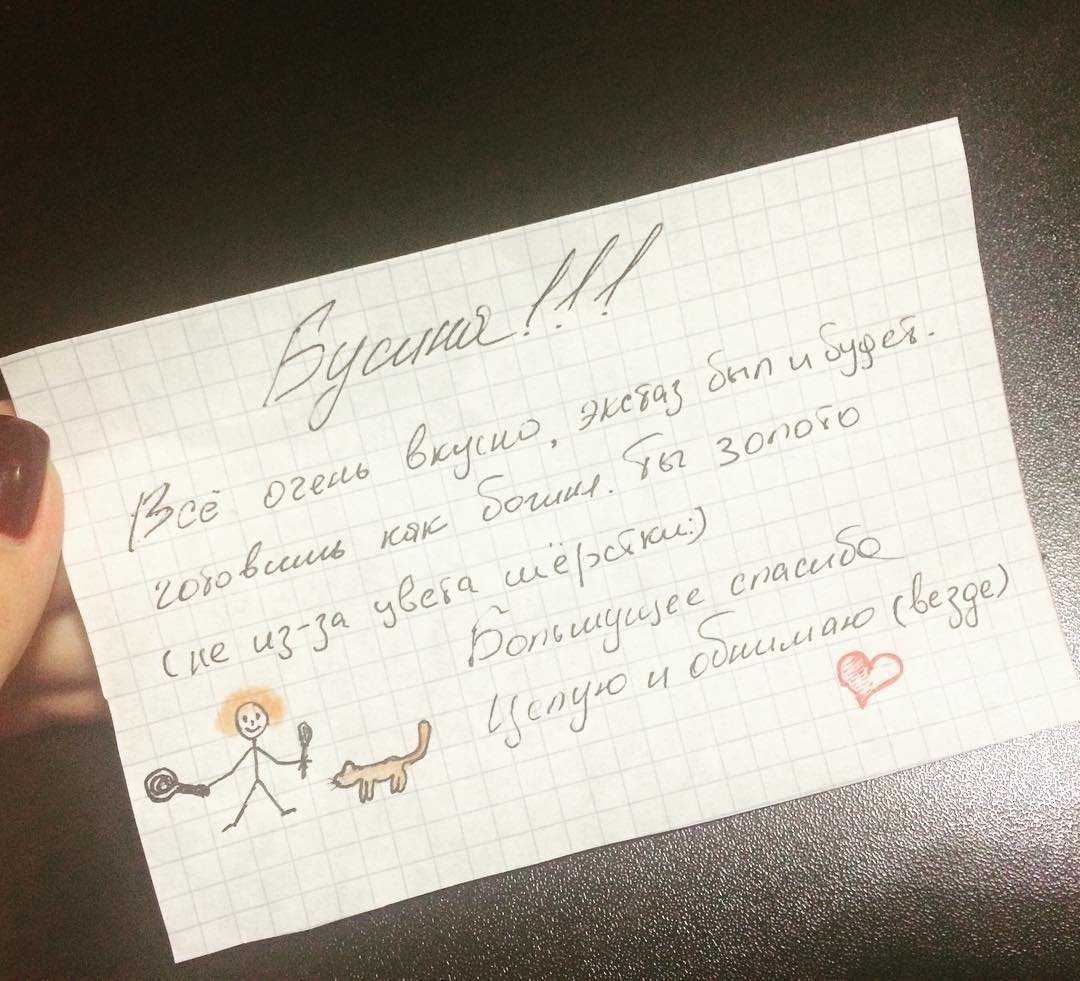 Бусина!!!
Всё очень вкусно, экстаз был и будет.
готовишь как богиня. Ты золото
(не из-за цвета шёрстки:)
Большущее спасибо
Целую и обнимаю (везде)